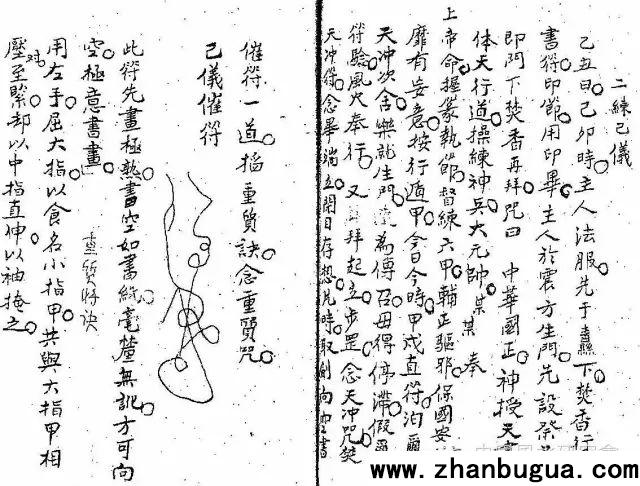 二練己儀
己丑日己卯時主人法服先于纛下焚香行
書符印篰用印畢主人於震方生門先設祭
即門下焚香再拜咒曰 中華國正神授天
体天行道操練神兵大元帥某某 奉
上帝命握篆執篰督練六甲輔正驅邪保國安
靡有妄意按行遁甲今日今時甲戌直符泊
天冲次舍樂就生門 為傳召毋得停滯假
符驗風火奉行 又 拜起立步罡念天冲咒焚
天冲符念畢端立閉目存想片時取劍向空書
催符一道掐重質訣念重質咒
己儀催符
此符先畫極熟書空如書紙毫釐無訛方可向
空極意書畫
重質將訣
用左手屈大指以食名小指甲共與大指甲相
對壓至緊却以中指直伸以袖掩之
www.zhanbugua.com